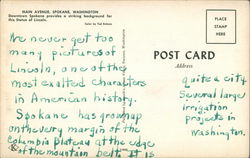 MAIN AVENUE, SPOKANE, WASHINGTON
Downtown Spokane provides a striking background for
this Statue of Lincoln.
PLACE
STAMP
HERE
POST CARD
Address
We never get too
many pictures of
Lincoln, one of the
most exalted characters
in American history.
Spokane has grown up
on the very margin of the
Columbia Plateau at the edge
of the mountain belt. It is
quite a city.
Several large
irrigation
projects in
Washington.